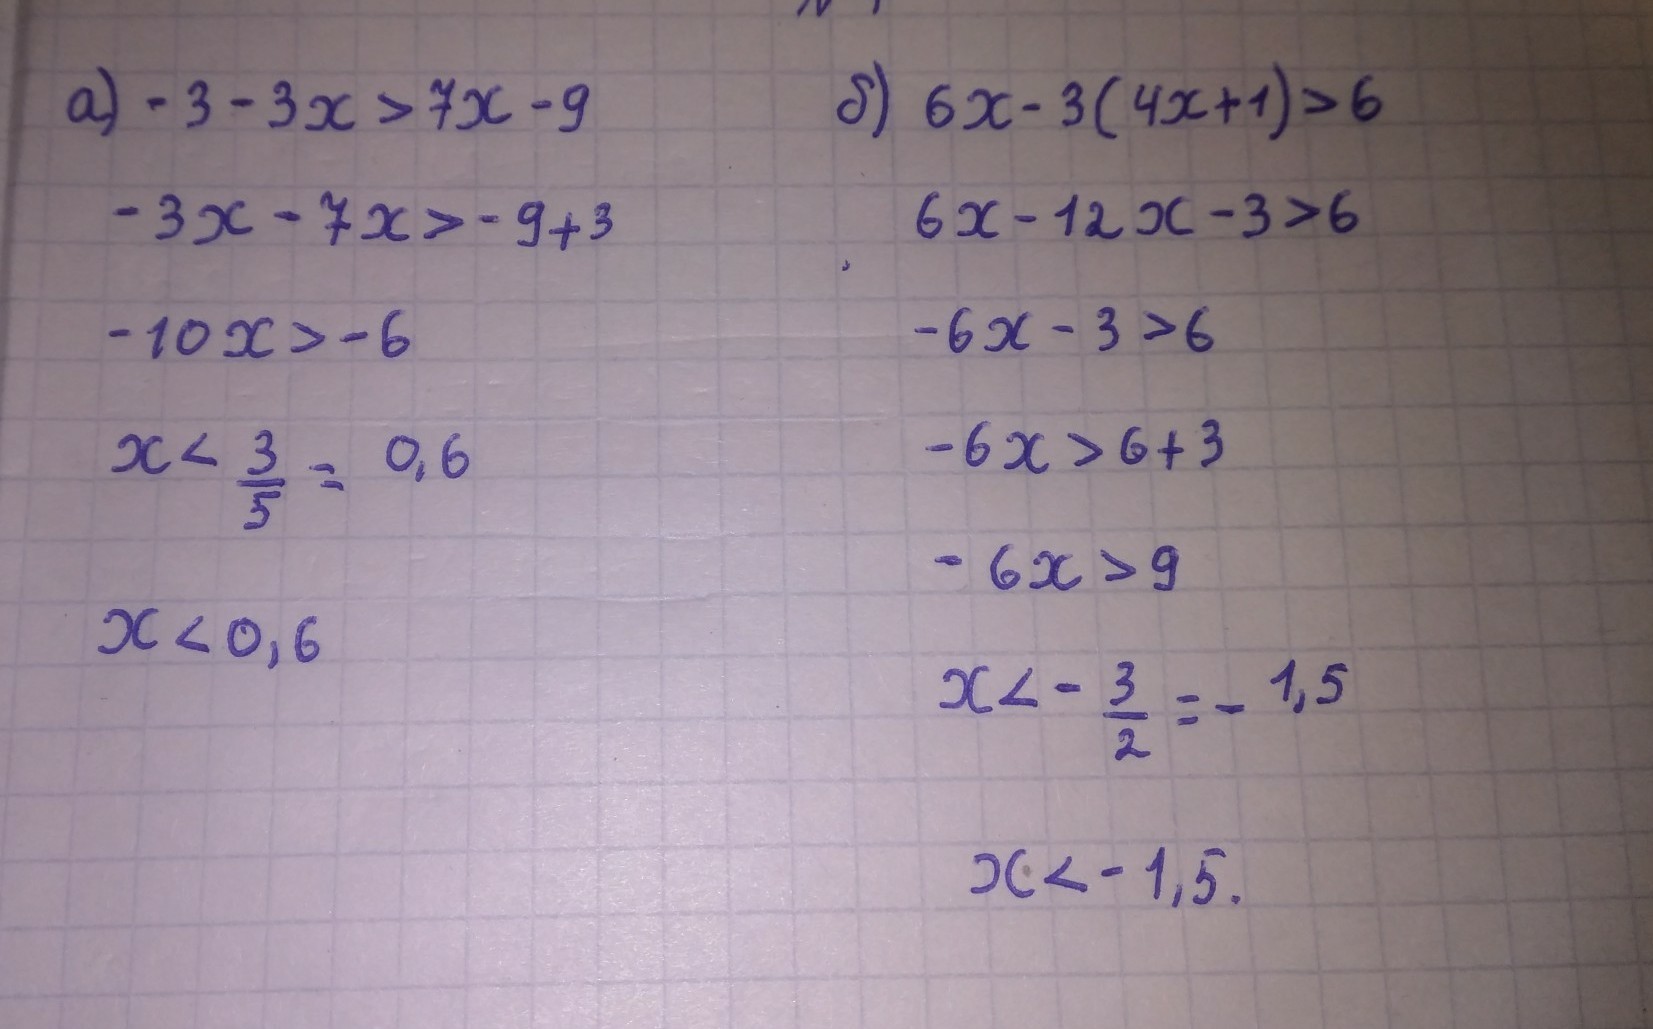 а) -3-3x>7x-9
-3x-7x>-9+3
-10x>-6
x< 3/5 = 0,6
x<0,6
б) 6x-3(4x+1)>6
6x-12x-3>6
-6x-3>6
-6x>6+3
-6x>9
x<- 3/2 =- 1,5
x<-1,5.